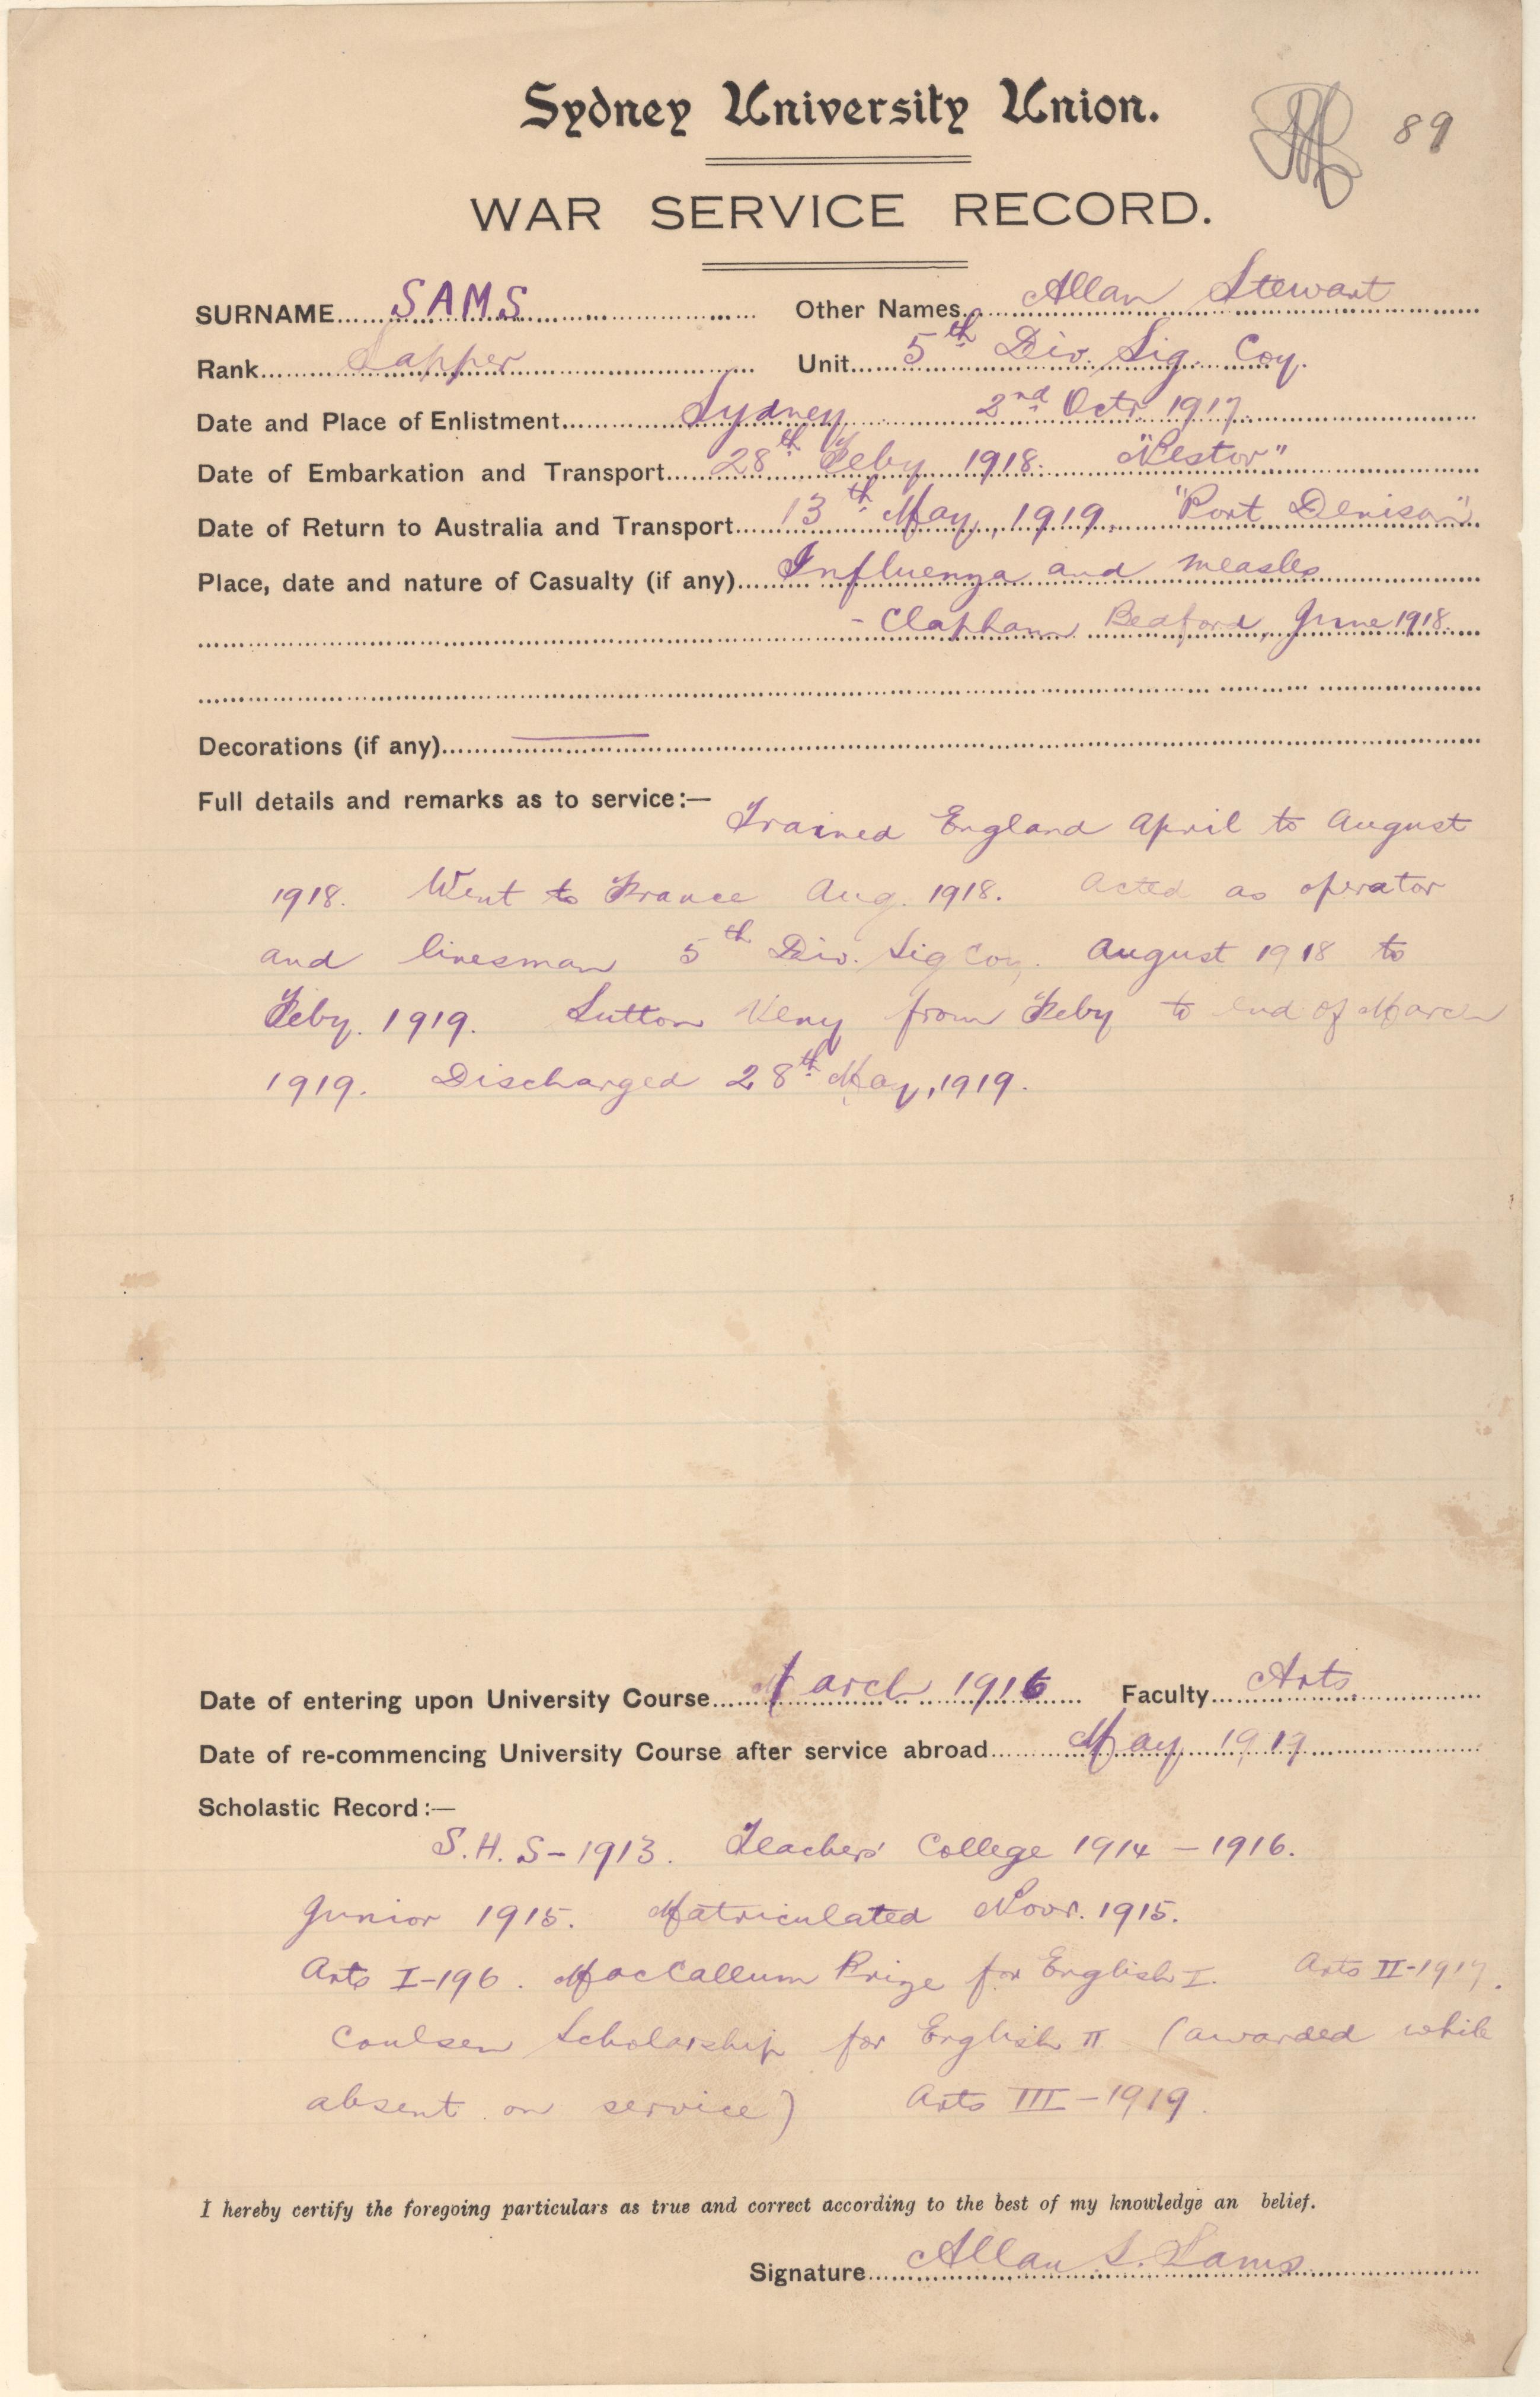 Sydney University Union.
89
WAR SERVICE RECORD.
SURNAME SAMS Other Names Allan Stewart
Rank Sapper Unit 5th Div. Sig. Coy.
Date and Place of Enlistment Sydney 2nd Octr. 1917
Date of Embarkation and Transport 28th Feby 1918. "Nestor"
Date of Return to Australia and Transport 13th May, 1919. "Port Denison"
Place, date and nature of Casualty (if any) Influenza and measles
- Clapham Bedford, June 1918.
Decorations (if any) ——
Full details and remarks as to service:—
Trained England April to August
1918. Went to France Aug. 1918. Acted as operator
and linesman 5th Div. Sig Coy. August 1918 to
Feby. 1919. Sutton Veny from Feby to end of March
1919. Discharged 28th May, 1919.
Date of entering upon University Course March 1916 Faculty Arts
Date of re-commencing University Course after service abroad May 1919
Scholastic Record:—
S.H.S-1913. Teachers' College 1914 - 1916.
Junior 1915. Matriculated Novr. 1915.
Arts I-196. MacCallum Prize for English I. Arts II-1917.
Coulsen Scholarship for English II (awarded while
absent on service) Arts III - 1919.
I hereby certify the foregoing particulars as true and correct according to the best of my knowledge an belief.
Signature Allan S. Sams